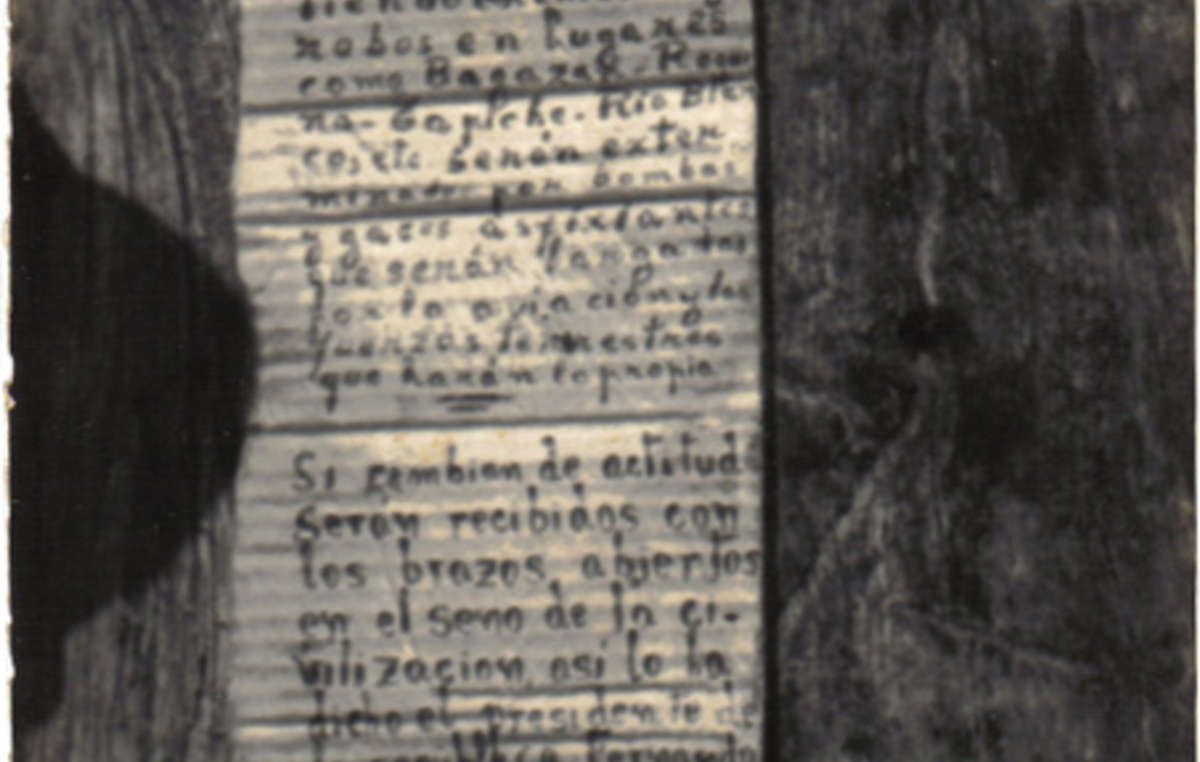 robos en lugares
como Bagazan, Reque
na- Contamana- Rio Blan
co, etc serán exter
minados por bombas
y gases asfixiantes
que serán lanzados
por la aviación y las
fuerzas terrestres
que harán lo propio
Si cambian de actitud
serán recibidos con
los brazos abiertos
en el seno de la ci-
vilizacion, asi lo ha
dicho el presidente de
Fernando